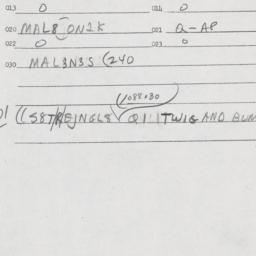 013 0 014 0
020 MAL8 ON1K 021 Q-AP
022 0 023 0
030 MAL3N3S (240
1088830
((S8T EJNGL8 Q1: 1TWIG AND BUN